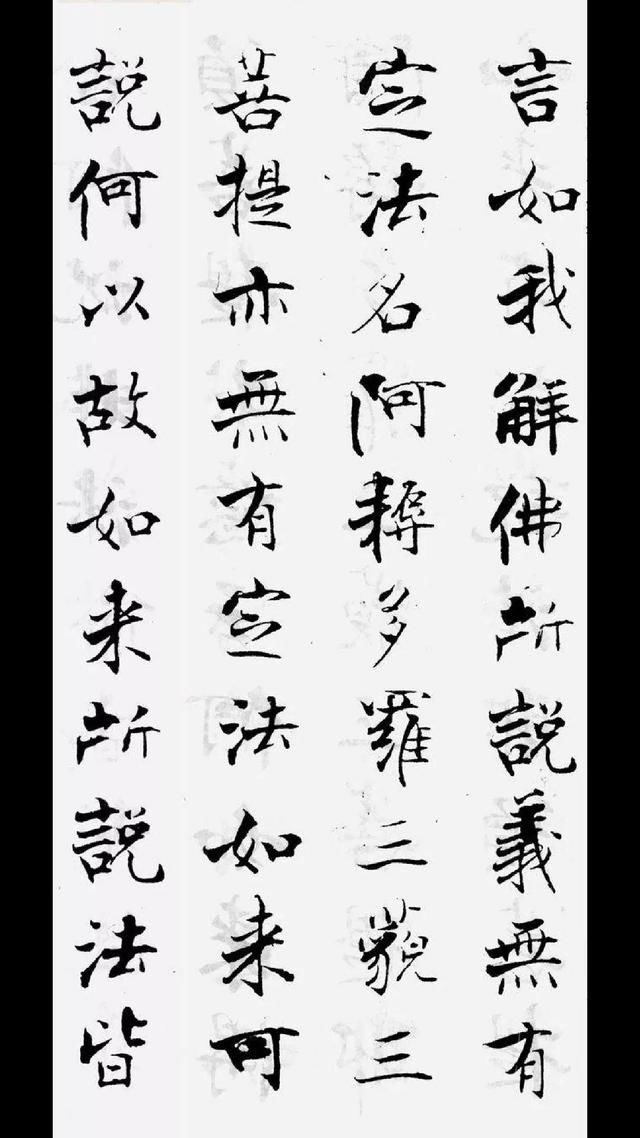 言如我解佛所說義無有
定法名阿耨多羅三藐三
菩提亦無有定法如来可
說何以故如来所說法皆